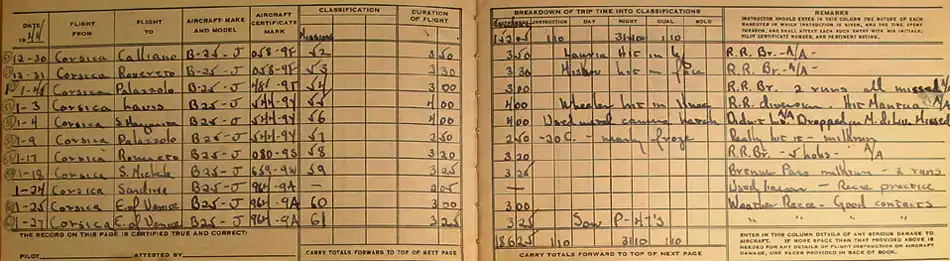 DATE
FLIGHT FROM
FLIGHT TO
AIRCRAFT-MAKE AND MODEL
AIRCRAFT CERTIFICATE MARK
CLASSIFICATION
DURATION OF FLIGHT
1944 Missions
12-30 Corsica Calliano B-25-J 058-9F 52 3 50
12-31 Corsica Rovereto B-25-J 058-9F 53 3 30
Corsica Palazzolo B-25-J 54 3 00
1-3 Corsica Lavis B25-J 544-9Y 55 4 00
1-4 Corsica B25-J 544-9Y 56 4 00
1-9 Corsica Palazzolo B25-J 544-9Y 57 2 50
1-17 Corsica Rovereto B25-J 080-9S 58 3 20
1-18 Corsica S. Michele B25-J 659-9W 59 3 25
1-24 Corsica Sardinia B25-J 964-9A — 2 05
1-25 Corsica E. of Venice B25-J 964-9A 60 3 00
1-27 Corsica E. of Venice B25-J 964-9A 61 3 25
THE RECORD ON THIS PAGE IS CERTIFIED TRUE AND CORRECT:
PILOT ATTESTED BY
CARRY TOTALS FORWARD TO TOP OF NEXT PAGE
BREAKDOWN OF TRIP TIME INTO CLASSIFICATIONS
INSTRUCTION DAY NIGHT DUAL SOLO
REMARKS
INSTRUCTOR SHOULD ENTER IN THIS COLUMN THE NATURE OF EACH
MANEUVER IN WHICH INSTRUCTION IS GIVEN, AND THE TIME SPENT
THEREON, AND SHALL ATTEST EACH SUCH ENTRY WITH HIS INITIALS,
PILOT CERTIFICATE NUMBER, AND PERTINENT RATING.
152 05 1 10 31 10 1 10
3 50 Hit in R.R. Br. - A/A -
3 30 hit in face R.R. Br. - A/A -
3 00 R.R. Br. 2 runs all missed
4 00 Wheeler hit in knee R.R. diversion. Hit Mantua A/A
4 00 Used camera hatch Didn't hit Dropped in Missed
2 50 -20 C. - nearly froze Really hit it - milkrun
3 20 R.R. Br. - 5 holes - A/A
3 25 Brenner Pass milkrun - 2 runs
— Used liaison - Recce practice
3 00 Weather Recce - Good contacts
3 25 Saw P-47's " " " "
186 25 1 10 31 10 1 10
CARRY TOTALS FORWARD TO TOP OF NEXT PAGE
ENTER IN THIS COLUMN DETAILS OF ANY SERIOUS DAMAGE TO
AIRCRAFT. IF MORE SPACE THAN THAT PROVIDED ABOVE IS
NEEDED FOR ANY DETAILS OF FLIGHT INSTRUCTION OR AIRCRAFT
DAMAGE, USE PAGES PROVIDED IN BACK OF BOOK.